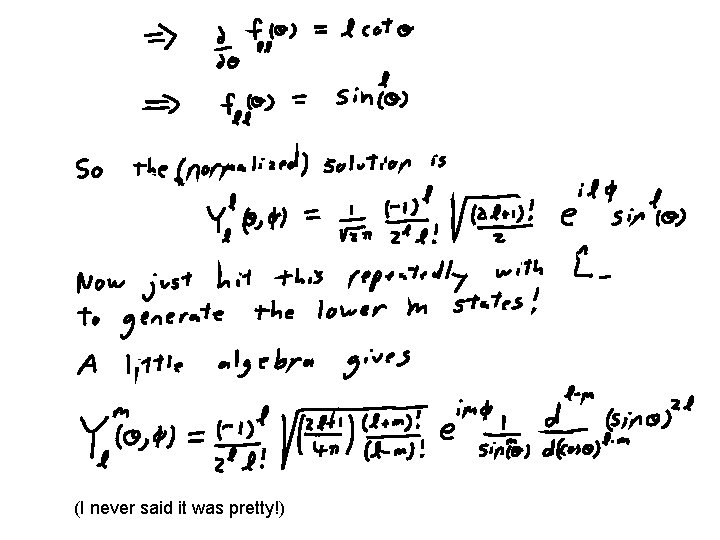 ⇒ ∂/∂θ f_ll(θ) = l cot θ
⇒ f_ll(θ) = sin^l(θ)
So the (normalized) solution is
Y_l^l(θ,ϕ) = 1/√2π (-1)^l/(2^l l!) √((2l+1)!/2) e^{ilϕ} sin^l(θ)
Now just hit this repeatedly with L̂_-
to generate the lower m states!
A little algebra gives
Y_l^m(θ,ϕ) = (-1)^l/(2^l l!) √(((2l+1)/4π) (l+m)!/(l-m)!) e^{imϕ} 1/sin^m(θ) d^{l-m}/d(cosθ)^{l-m} (sinθ)^{2l}
(I never said it was pretty!)